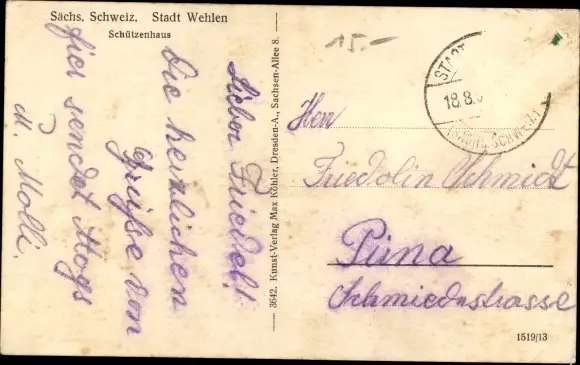 Sächs. Schweiz. Stadt Wehlen
Schützenhaus
Lieber Friedel!
Die herzlichen
Grüße von
hier sendet
M. Molli.
3642. Kunst-Verlag Max Köhler, Dresden-A., Sachsen-Allee 8.
15.—
STADT
18.8.
(SÄCHS. SCHWEIZ)
Herrn
Friedolin Schmidt
Pirna
Schmiedestrasse
1519/13